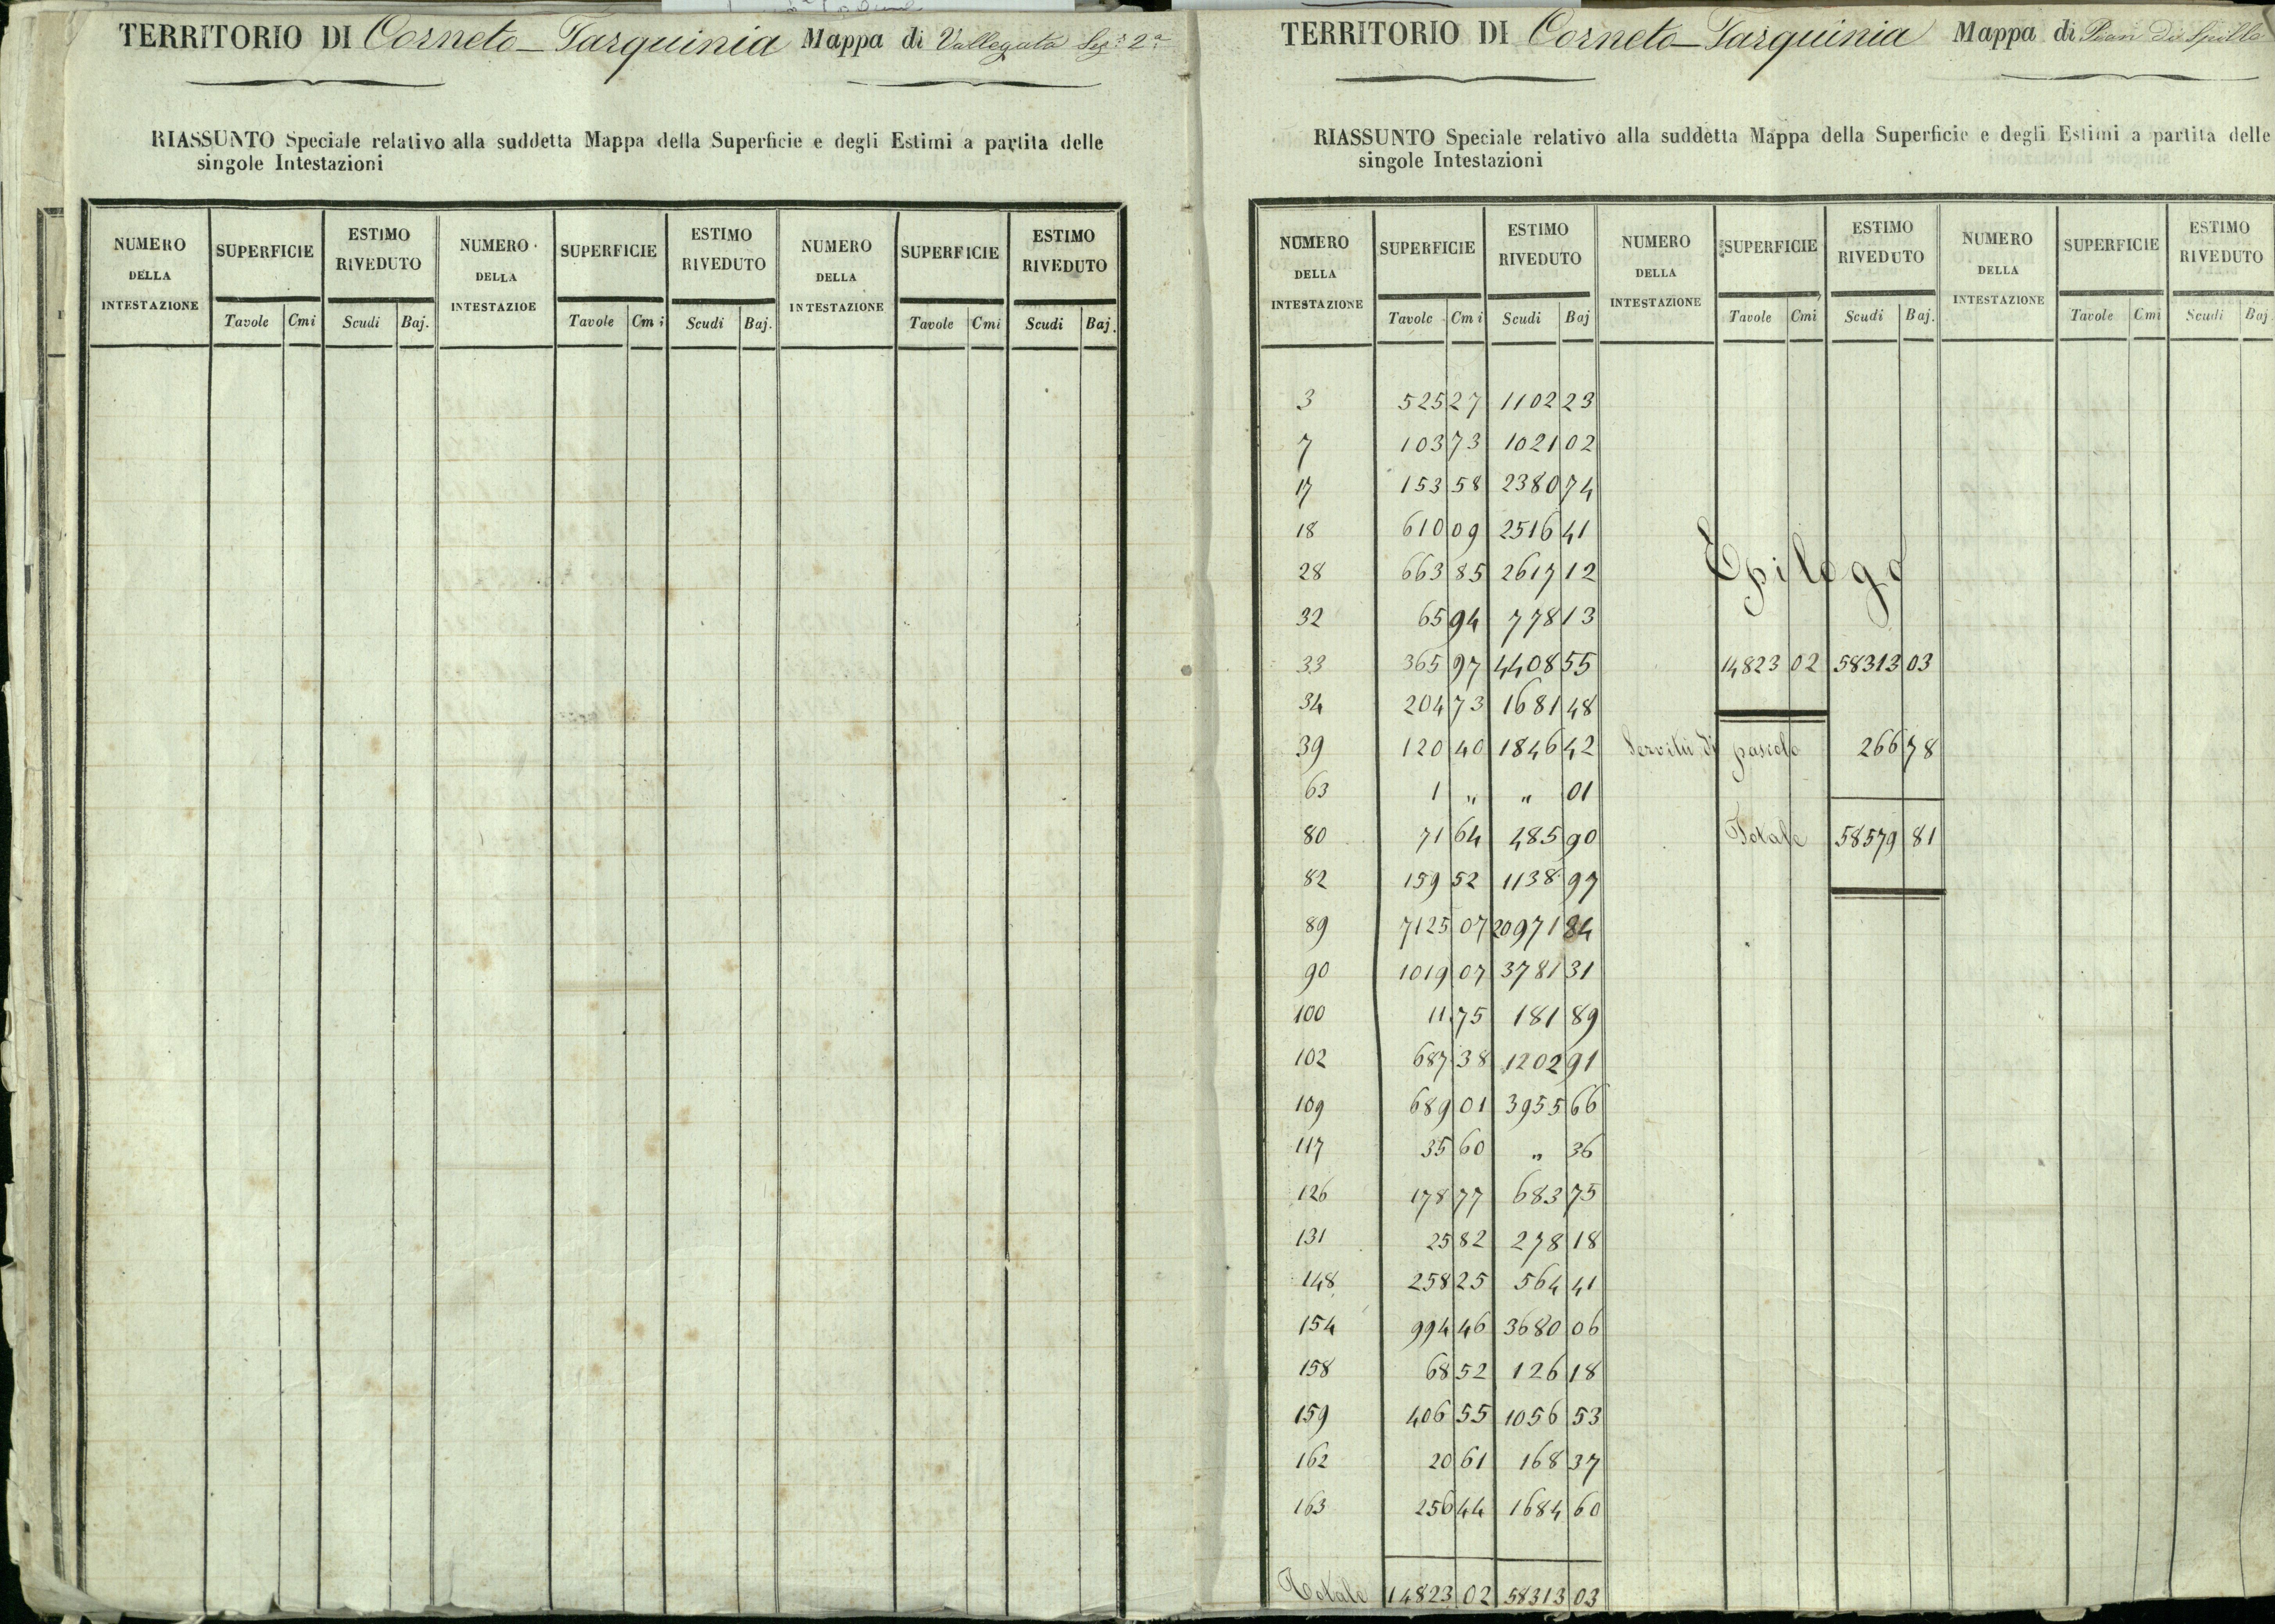 TERRITORIO DI Corneto-Tarquinia Mappa di Vallegata Sez.e 2.a
RIASSUNTO Speciale relativo alla suddetta Mappa della Superficie e degli Estimi a partita delle
singole Intestazioni
NUMERO DELLA INTESTAZIONE SUPERFICIE ESTIMO RIVEDUTO NUMERO DELLA INTESTAZIOE SUPERFICIE ESTIMO RIVEDUTO NUMERO DELLA INTESTAZIONE SUPERFICIE ESTIMO RIVEDUTO
Tavole Cmi Scudi Baj. Tavole Cmi Scudi Baj. Tavole Cmi Scudi Baj.
TERRITORIO DI Corneto-Tarquinia Mappa di Pian di Spille
RIASSUNTO Speciale relativo alla suddetta Mappa della Superficie e degli Estimi a partita delle
singole Intestazioni
NUMERO DELLA INTESTAZIONE SUPERFICIE ESTIMO RIVEDUTO NUMERO DELLA INTESTAZIONE SUPERFICIE ESTIMO RIVEDUTO NUMERO DELLA INTESTAZIONE SUPERFICIE ESTIMO RIVEDUTO
Tavole Cmi Scudi Baj Tavole Cmi Scudi Baj. Tavole Cmi Scudi Baj
3 525 27 1102 23
7 103 73 1021 02
17 153 58 2380 74
18 610 09 2516 41
28 663 85 2617 12
32 65 94 778 13
33 365 97 4408 55
34 204 73 1681 48
39 120 40 1846 42
63 1 „ „ 01
80 71 64 485 90
82 159 52 1138 97
89 7125 07 20971 84
90 1019 07 3781 31
100 11 75 181 89
102 687 38 1202 91
109 689 01 3955 66
117 35 60 „ 36
126 178 77 683 75
131 25 82 278 18
148 258 25 564 41
154 994 46 3680 06
158 68 52 126 18
159 406 55 1056 53
162 20 61 168 37
163 256 44 1684 60
Totale 14823 02 58313 03
Epilogo
14823 02 58313 03
Servitù di pascolo 266 78
Totale 58579 81